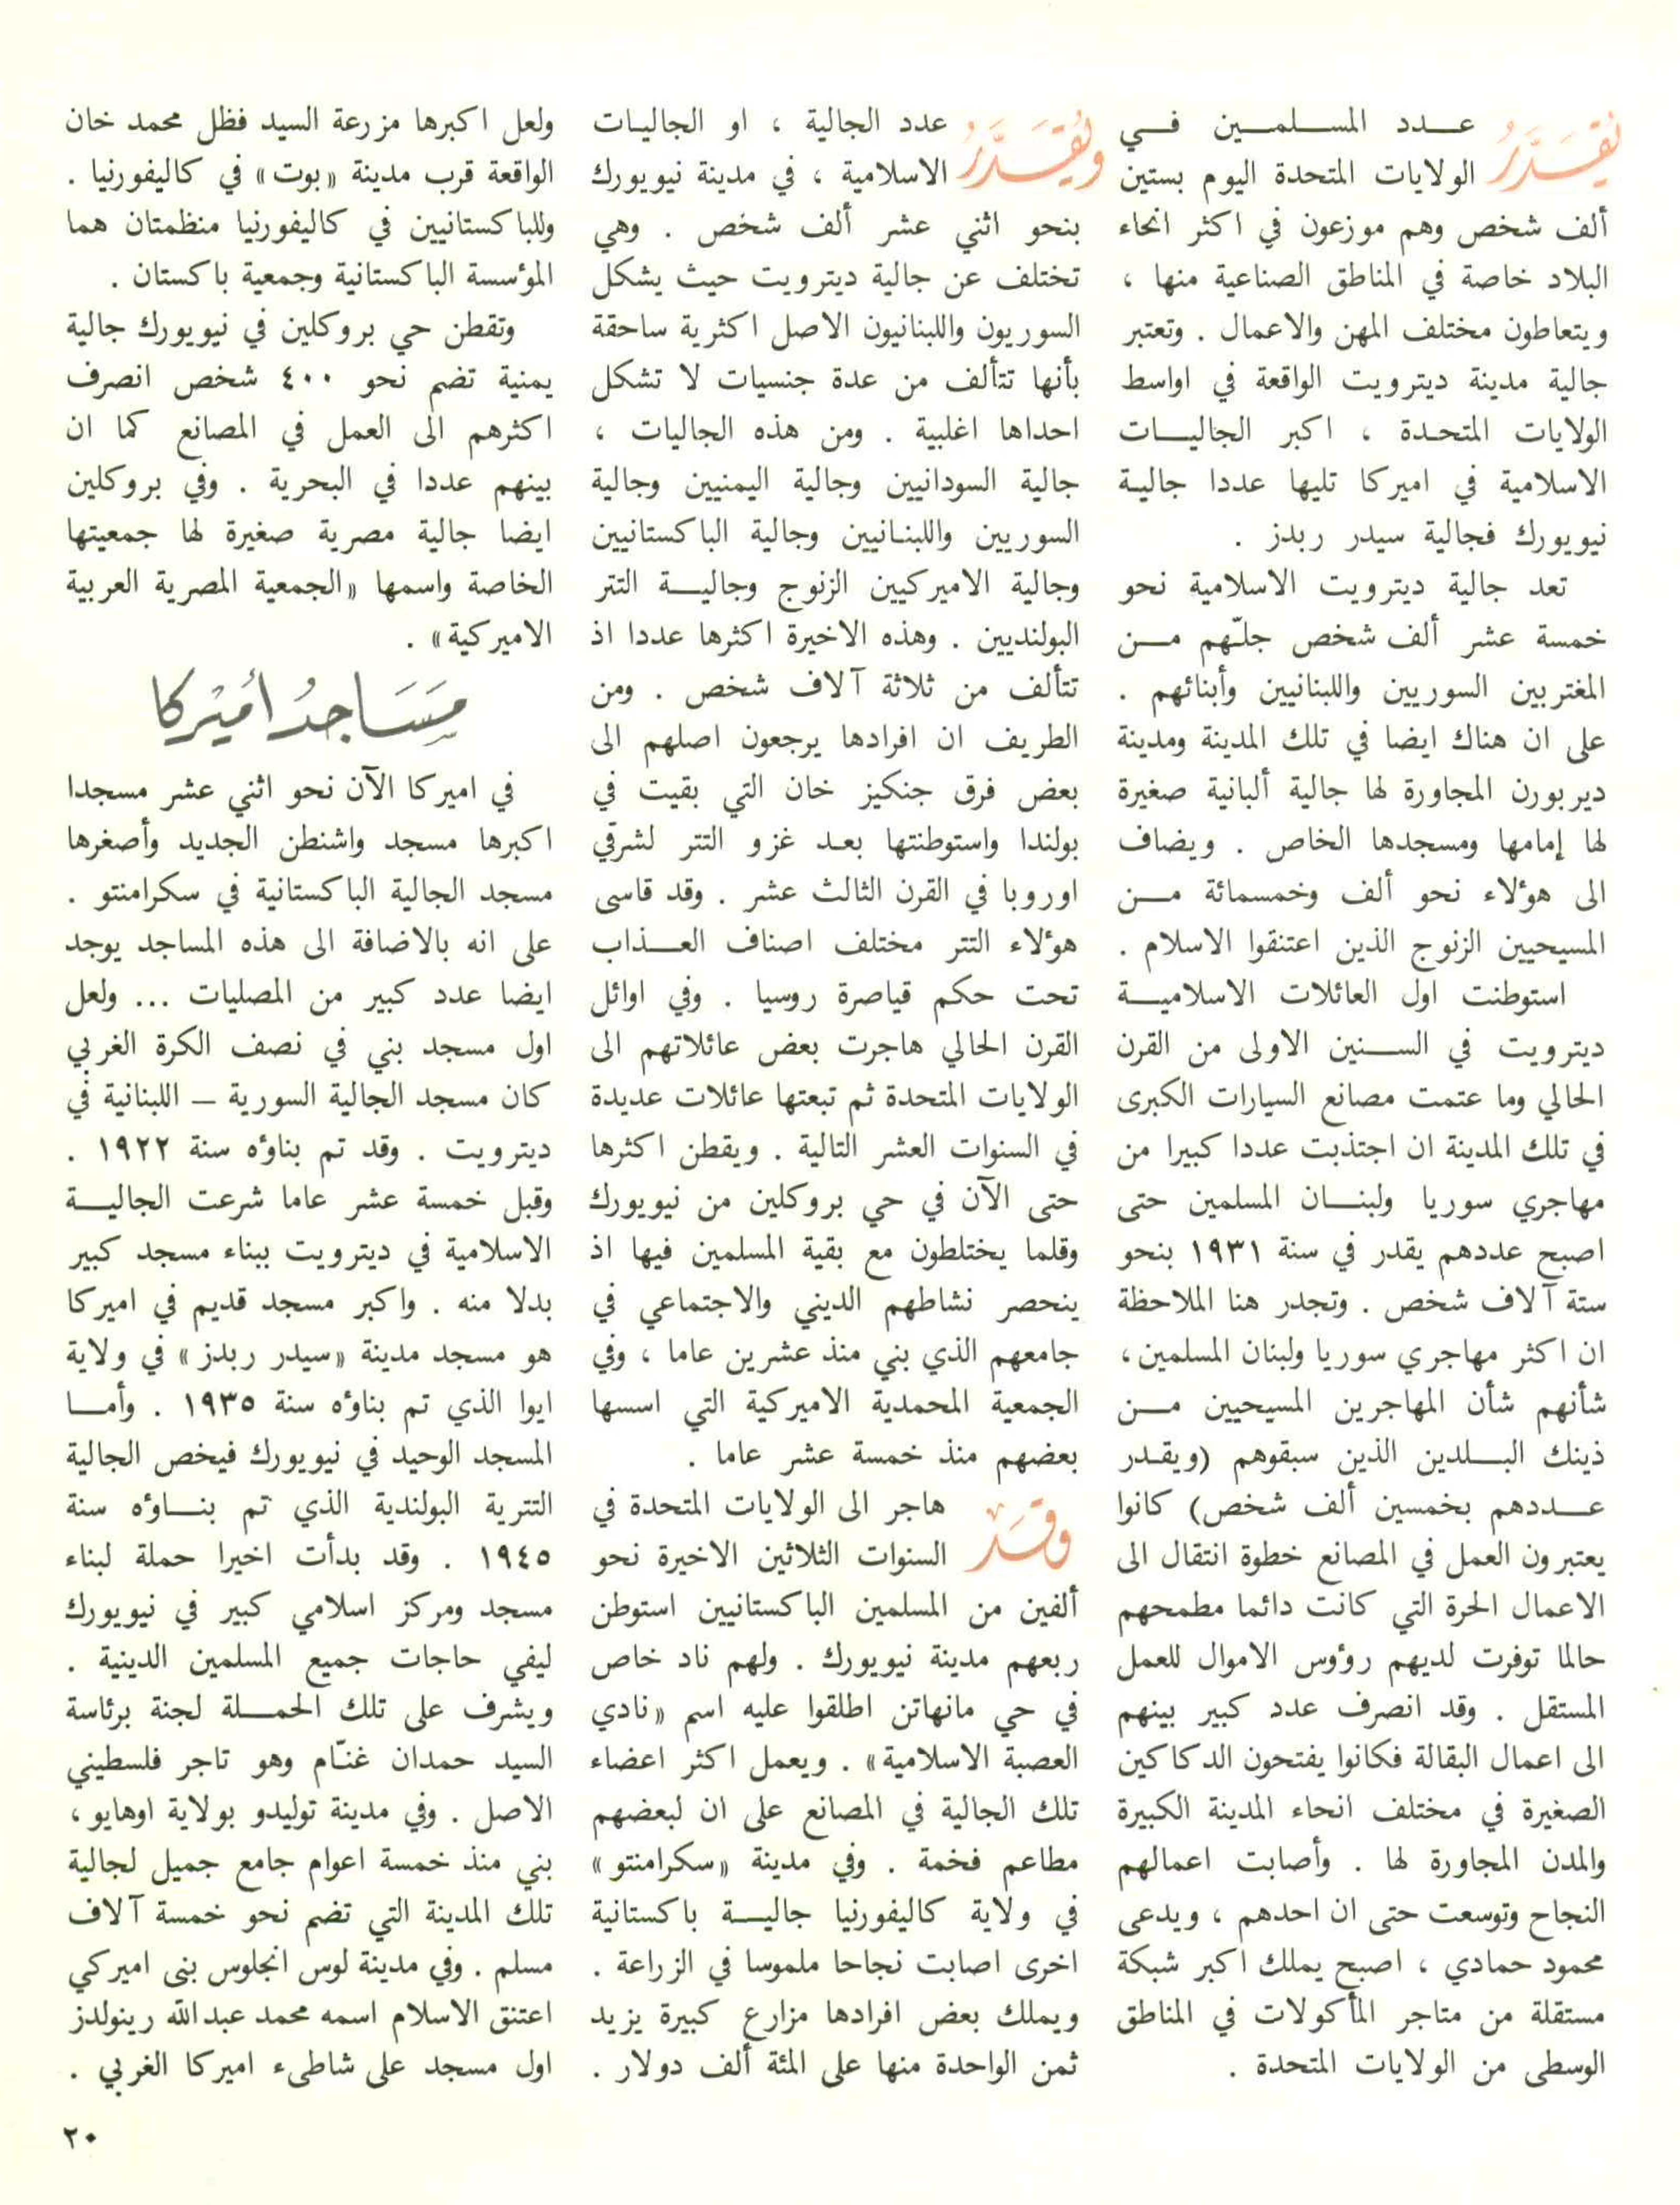 يُقَدَّرُ عـــدد المســـلمـــين فـــي
الولايات المتحدة اليوم بستين
ألف شخص وهم موزعون في اكثر انحاء
البلاد خاصة في المناطق الصناعية منها ،
ويتعاطون مختلف المهن والاعمال . وتعتبر
جالية مدينة ديترويت الواقعة في اواسط
الولايات المتحدة ، اكبر الجاليـــات
الاسلامية في اميركا تليها عددا جالية
نيويورك فجالية سيدر ربدز .
تعد جالية ديترويت الاسلامية نحو
خمسة عشر ألف شخص جلّهم مـــن
المغتربين السوريين واللبنانيين وأبنائهم .
على ان هناك ايضا في تلك المدينة ومدينة
ديربورن المجاورة لها جالية ألبانية صغيرة
لها إمامها ومسجدها الخاص . ويضاف
الى هؤلاء نحو ألف وخمسمائة مـــن
المسيحيين الزنوج الذين اعتنقوا الاسلام .
استوطنت اول العائلات الاسلاميـــة
ديترويت في الســـنين الاولى من القرن
الحالي وما عتمت مصانع السيارات الكبرى
في تلك المدينة ان اجتذبت عددا كبيرا من
مهاجري سوريا ولبنـــان المسلمين حتى
اصبح عددهم يقدر في سنة ١٩٣١ بنحو
ستة آلاف شخص . وتجدر هنا الملاحظة
ان اكثر مهاجري سوريا ولبنان المسلمين ،
شأنهم شأن المهاجرين المسيحيين مـــن
ذينك البـــلدين الذين سبقوهم (ويقـدر
عـــددهم بخمسين ألف شخص) كانوا
يعتبرون العمل في المصانع خطوة انتقال الى
الاعمال الحرة التي كانت دائما مطمحهم
حالما توفرت لديهم رؤوس الاموال للعمل
المستقل . وقد انصرف عدد كبير بينهم
الى اعمال البقالة فكانوا يفتحون الدكاكين
الصغيرة في مختلف انحاء المدينة الكبيرة
والمدن المجاورة لها . وأصابت اعمالهم
النجاح وتوسعت حتى ان احدهم ، ويدعى
محمود حمادي ، اصبح يملك اكبر شبكة
مستقلة من متاجر المأكولات في المناطق
الوسطى من الولايات المتحدة .
ويُقَدَّرُ عدد الجالية ، او الجاليـات
الاسلامية ، في مدينة نيويورك
بنحو اثني عشر ألف شخص . وهي
تختلف عن جالية ديترويت حيث يشكل
السوريون واللبنانيون الاصل اكثرية ساحقة
بأنها تتألف من عدة جنسيات لا تشكل
احداها اغلبية . ومن هذه الجاليات ،
جالية السودانيين وجالية اليمنيين وجالية
السوريين واللبنـانيين وجالية الباكستانيين
وجالية الاميركيين الزنوج وجاليـــة التتر
البولنديين . وهذه الاخيرة اكثرها عددا اذ
تتألف من ثلاثة آلاف شخص . ومن
الطريف ان افرادها يرجعون اصلهم الى
بعض فرق جنكيز خان التي بقيت في
بولندا واستوطنتها بعـد غزو التتر لشرقي
اوروبا في القرن الثالث عشر . وقد قاسى
هؤلاء التتر مختلف اصناف العـــذاب
تحت حكم قياصرة روسيا . وفي اوائل
القرن الحالي هاجرت بعض عائلاتهم الى
الولايات المتحدة ثم تبعتها عائلات عديدة
في السنوات العشر التالية . ويقطن اكثرها
حتى الآن في حي بروكلين من نيويورك
وقلما يختلطون مع بقية المسلمين فيها اذ
ينحصر نشاطهم الديني والاجتماعي في
جامعهم الذي بني منذ عشرين عاما ، وفي
الجمعية المحمدية الاميركية التي اسسها
بعضهم منذ خمسة عشر عاما .
وقَد هاجر الى الولايات المتحدة في
السنوات الثلاثين الاخيرة نحو
ألفين من المسلمين الباكستانيين استوطن
ربعهم مدينة نيويورك . ولهم ناد خاص
في حي مانهاتن اطلقوا عليه اسم «نادي
العصبة الاسلامية» . ويعمل اكثر اعضاء
تلك الجالية في المصانع على ان لبعضهم
مطاعم فخمة . وفي مدينة «سكرامنتو»
في ولاية كاليفورنيا جاليـــة باكستانية
اخرى اصابت نجاحا ملموسا في الزراعة .
ويملك بعض افرادها مزارع كبيرة يزيد
ثمن الواحدة منها على المئة ألف دولار .
ولعل اكبرها مزرعة السيد فظل محمد خان
الواقعة قرب مدينة «بوت» في كاليفورنيا .
وللباكستانيين في كاليفورنيا منظمتان هما
المؤسسة الباكستانية وجمعية باكستان .
وتقطن حي بروكلين في نيويورك جالية
يمنية تضم نحو ٤٠٠ شخص انصرف
اكثرهم الى العمل في المصانع كما ان
بينهم عددا في البحرية . وفي بروكلين
ايضا جالية مصرية صغيرة لها جمعيتها
الخاصة واسمها «الجمعية المصرية العربية
الاميركية» .
مَسَاجِدُ أمْيِركا
في اميركا الآن نحو اثني عشر مسجدا
اكبرها مسجد واشنطن الجديد وأصغرها
مسجد الجالية الباكستانية في سكرامنتو .
على انه بالاضافة الى هذه المساجد يوجد
ايضا عدد كبير من المصليات ... ولعل
اول مسجد بني في نصف الكرة الغربي
كان مسجد الجالية السورية – اللبنانية في
ديترويت . وقد تم بناؤه سنة ١٩٢٢ .
وقبل خمسة عشر عاما شرعت الجاليـــة
الاسلامية في ديترويت ببناء مسجد كبير
بدلا منه . واكبر مسجد قديم في اميركا
هو مسجد مدينة «سيدر ربدز» في ولاية
ايوا الذي تم بناؤه سنة ١٩٣٥ . وأمـــا
المسجد الوحيد في نيويورك فيخص الجالية
التترية البولندية الذي تم بنـــاؤه سنة
١٩٤٥ . وقد بدأت اخيرا حملة لبناء
مسجد ومركز اسلامي كبير في نيويورك
ليفي حاجات جميع المسلمين الدينية .
ويشرف على تلك الحمـــلة لجنة برئاسة
السيد حمدان غنّام وهو تاجر فلسطيني
الاصل . وفي مدينة توليدو بولاية اوهايو ،
بني منذ خمسة اعوام جامع جميل لجالية
تلك المدينة التي تضم نحو خمسة آلاف
مسلم . وفي مدينة لوس انجلوس بنى اميركي
اعتنق الاسلام اسمه محمد عبدالله رينولدز
اول مسجد على شاطىء اميركا الغربي .
٢٠